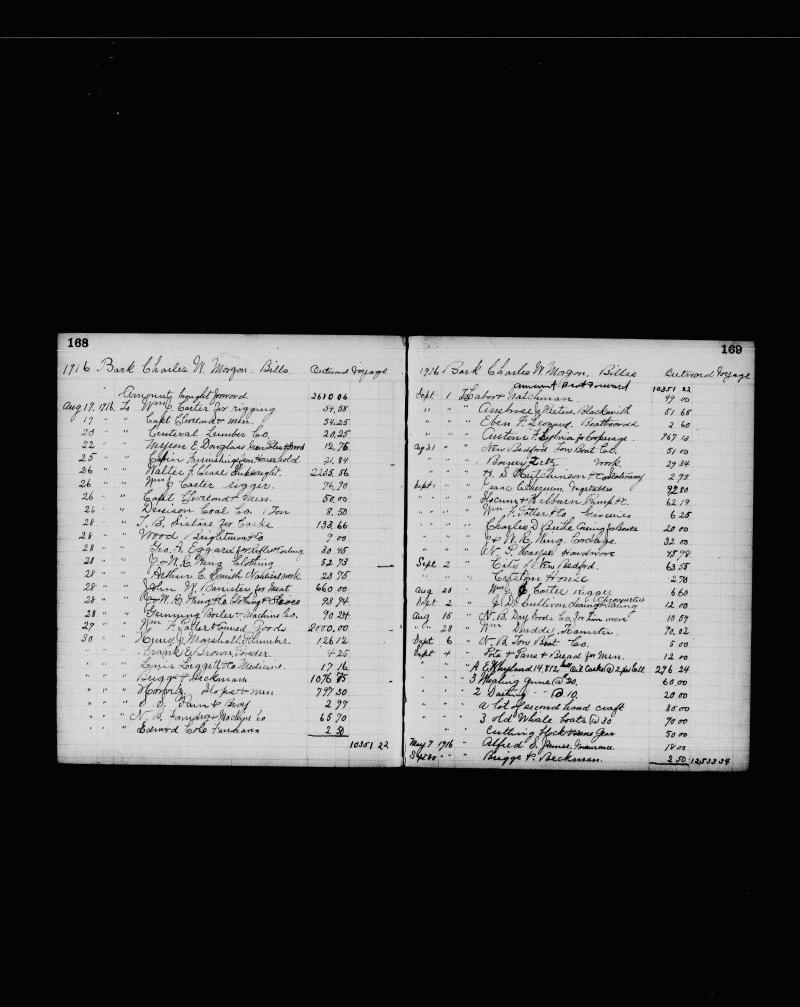 168
1916 Bark Charles W. Morgan. Bills Outward Voyage
Amount bought forward 2610 06
Aug 17. 1916. To Wm J. Carter for rigging 54.58
17 " " Capt Cleveland & men. 54.25
23 " " Lumber Co. 20.25
22 " " E. Douglass 12.76
25 " " Furnishings 21.84
26 " " Walter F. Chase Shipwright 2235.56
26 " " Wm J Carter rigger. 76.90
26 " " Capt Cleveland & men. 50.00
26 " " Denison Coal Co. 1 Ton 8.50
28 " " T. B. for Casks 133.66
28 " " Wood Brightman & Co 9 00
28 " " Geo. A. 30 45
28 " " J. & W. R. Wing Clothing 52 73
28 " " Arthur C. Smith Nautical work 23 75
28 " " John W. Banister for Meat 660 00
28 " " J & W. R. Wing & Co Clothing & 93 94
28 " " Boiler & Machine Co. 90 24
29 " " Wm Goods 2000.00
30 " " Henry J. Marshall. Plumber. 126 12
" " " Frank E. Brown, Powder. 4 25
" " " Lewis Leggett & Co Medicine. 17 16
" " " Briggs & Beckman 1076 85
" " " Horvitz Slops & men 797 30
" " " 2 97
" " " N. B. Foundry & Machine Co 65 70
" " " Edward Cole 2 50
10351 22
169
1916 Bark Charles W. Morgan. Bills Outward Voyage
Amount Brot Forward 10351 22
Sept 1 To Labor & Watchman. 49 00
" " " Ambrose J. Peters, Blacksmith 51 68
" " " Eben F. Leonard. Boatboards 2 60
" " " Antone F. Sylvia for Cooperage 767 13
Aug 31 " New Bedford Tow Boat Co. 51 00
" " " work 29 34
" " " H. S. Hutchinson & Co Stationary 2 95
Sept 1 " " Isaac C. Sherman Vegetables 92 80
" " " Slocum & Kilburn, Pump &c. 62 19
" " " Wm F. Potter & Co, Groceries 6 25
" " " Charles D Beetle for Boats 20 00
" " " J & W. R. Wing. Cordage. 32 00
" " " Hardware 45 98
Sept 2 " City of New Bedford. 63 55
" " " Custom House 2 70
Aug 28 " Wm J Carter rigger 6 60
Sept 2 " J. D. Sullivan cleaning & rating Chronometer 12 00
Aug 15 " N. B. Dry Goods Co. 10 59
" " 28 " Teamster. 90.02
Sept 6 " N. B. Tow Boat Co. 5 00
Sept 4 " Pots & Pans & Bread for Men. 12 00
" " A E Whyland 14,812 Gall Oil Casks @ 2 per Gall 296 24
" " " 3 Whaling Guns @ 20. 60.00
" " " 2 Darting " " @ 10. 20 00
" " " a lot of second hand craft 80 00
" " " 3 old Whale boats @ 30 90 00
" " Cutting block & some Gear 50 00
May 7 1916 " Alfred S. James. Insurance. 18 00
Sept 30 " " " Briggs & Beckman. 2 50 12533 34